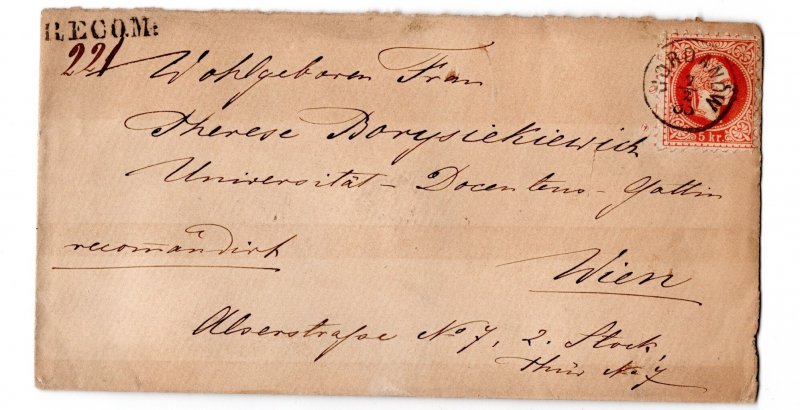 RECOM:
221
JORDANÓW
5 kr.
Wohlgeboren Frau
Therese Borysiekiewich
Universität - Docentens - Gattin
recomandirt
Wien
Alserstraße No 7, 2. Stock,
Thür No 7